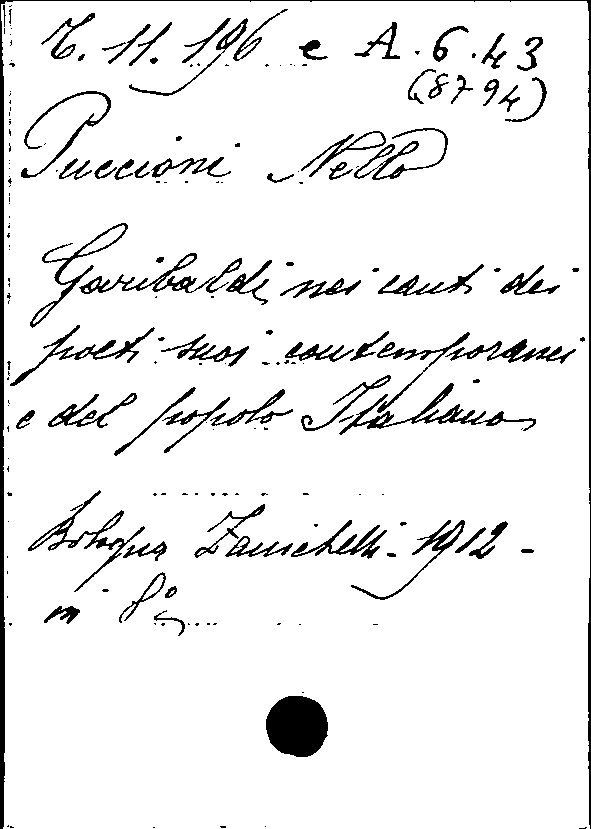 T. 11. 196 e A. 6. 43
(8794)
Puccioni Nello
Garibaldi nei canti dei
poeti suoi contemporanei
e del popolo Italiano
Bologna Zanichelli - 1912 -
in 8°